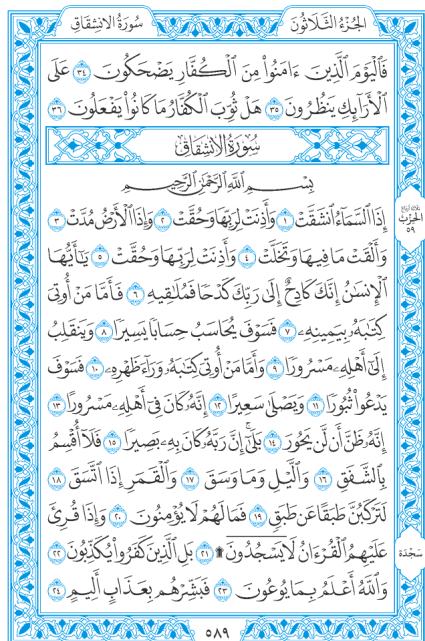 سُورَةُ الِانشِقَاقِ
الجُزْءُ الثَّلَاثُونَ
فَٱلْيَوْمَ ٱلَّذِينَ ءَامَنُوا۟ مِنَ ٱلْكُفَّارِ يَضْحَكُونَ ٣٤ عَلَى
ٱلْأَرَآئِكِ يَنظُرُونَ ٣٥ هَلْ ثُوِّبَ ٱلْكُفَّارُ مَا كَانُوا۟ يَفْعَلُونَ ٣٦
سُورَةُ الِانشِقَاقِ
بِسْمِ ٱللَّهِ ٱلرَّحْمَٰنِ ٱلرَّحِيمِ
إِذَا ٱلسَّمَآءُ ٱنشَقَّتْ ١ وَأَذِنَتْ لِرَبِّهَا وَحُقَّتْ ٢ وَإِذَا ٱلْأَرْضُ مُدَّتْ ٣
وَأَلْقَتْ مَا فِيهَا وَتَخَلَّتْ ٤ وَأَذِنَتْ لِرَبِّهَا وَحُقَّتْ ٥ يَٰٓأَيُّهَا
ٱلْإِنسَٰنُ إِنَّكَ كَادِحٌ إِلَىٰ رَبِّكَ كَدْحًا فَمُلَٰقِيهِ ٦ فَأَمَّا مَنْ أُوتِىَ
كِتَٰبَهُۥ بِيَمِينِهِۦ ٧ فَسَوْفَ يُحَاسَبُ حِسَابًا يَسِيرًا ٨ وَيَنقَلِبُ
إِلَىٰٓ أَهْلِهِۦ مَسْرُورًا ٩ وَأَمَّا مَنْ أُوتِىَ كِتَٰبَهُۥ وَرَآءَ ظَهْرِهِۦ ١٠ فَسَوْفَ
يَدْعُوا۟ ثُبُورًا ١١ وَيَصْلَىٰ سَعِيرًا ١٢ إِنَّهُۥ كَانَ فِىٓ أَهْلِهِۦ مَسْرُورًا ١٣
إِنَّهُۥ ظَنَّ أَن لَّن يَحُورَ ١٤ بَلَىٰٓ إِنَّ رَبَّهُۥ كَانَ بِهِۦ بَصِيرًا ١٥ فَلَآ أُقْسِمُ
بِٱلشَّفَقِ ١٦ وَٱلَّيْلِ وَمَا وَسَقَ ١٧ وَٱلْقَمَرِ إِذَا ٱتَّسَقَ ١٨
لَتَرْكَبُنَّ طَبَقًا عَن طَبَقٍ ١٩ فَمَا لَهُمْ لَا يُؤْمِنُونَ ٢٠ وَإِذَا قُرِئَ
عَلَيْهِمُ ٱلْقُرْءَانُ لَا يَسْجُدُونَ ۩ ٢١ بَلِ ٱلَّذِينَ كَفَرُوا۟ يُكَذِّبُونَ ٢٢
وَٱللَّهُ أَعْلَمُ بِمَا يُوعُونَ ٢٣ فَبَشِّرْهُم بِعَذَابٍ أَلِيمٍ ٢٤
ثلاثة أرباع
الحِزْب
٥٩
سَجْدَة
٥٨٩